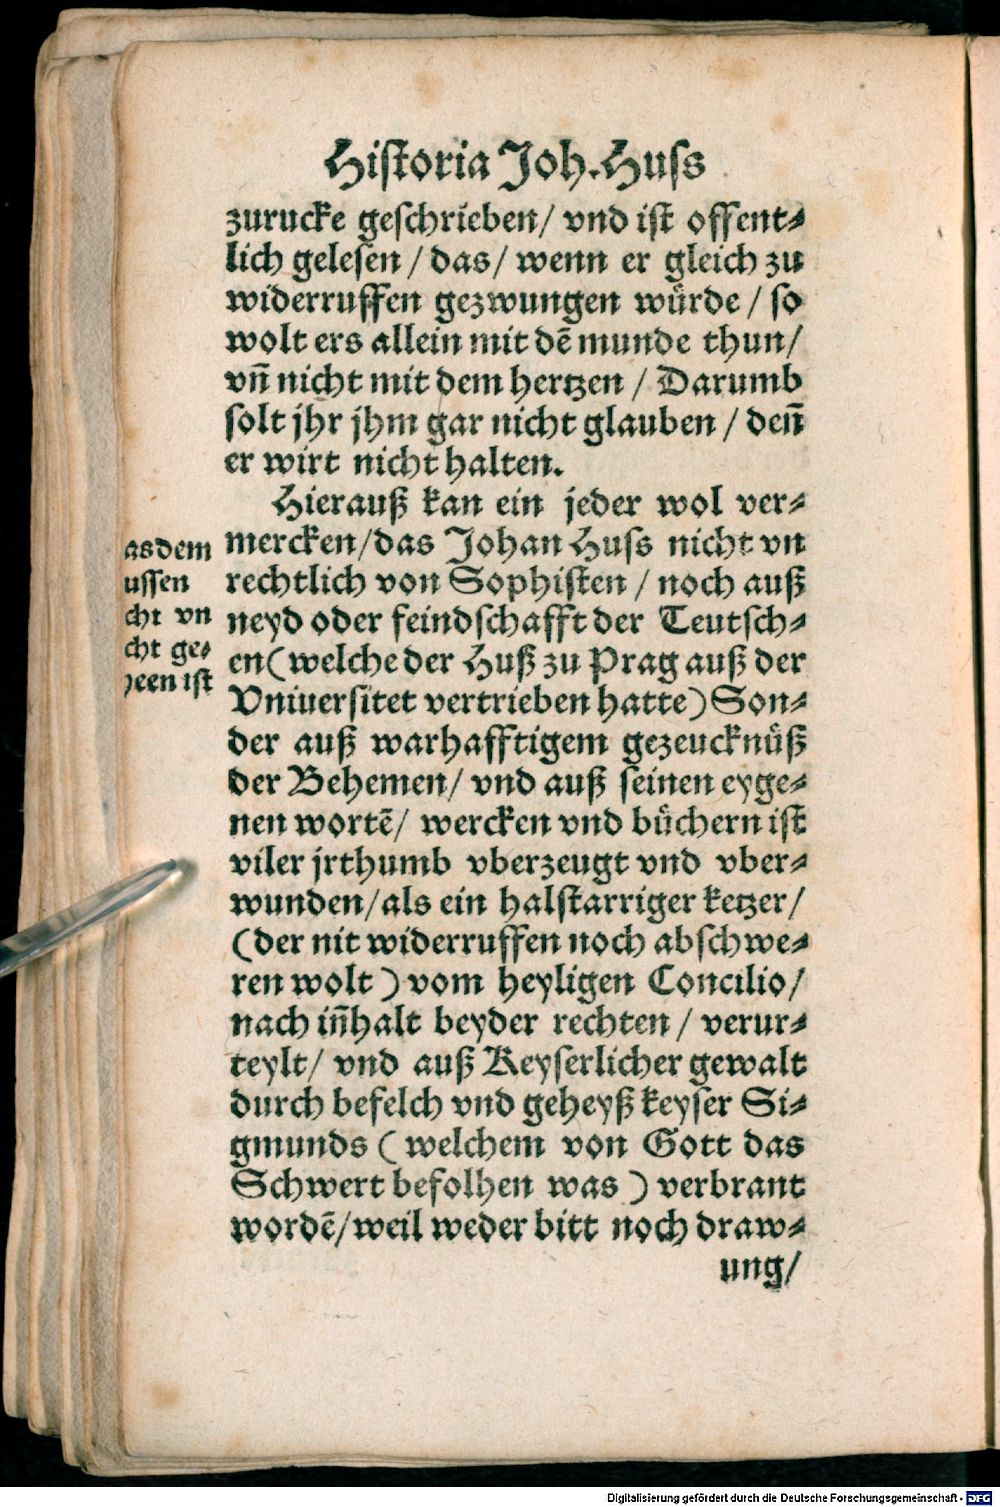 Historia Joh. Huss
zurucke geschrieben/ vnd ist offent⸗
lich gelesen / das/ wenn er gleich zu
widerruffen gezwungen wuͤrde / so
wolt ers allein mit dē munde thun/
vn̄ nicht mit dem hertzen / Darumb
solt jhr jhm gar nicht glauben / den̄
er wirt nicht halten.
Hierauß kan ein jeder wol ver⸗
mercken/das Johan Huss nicht vn
rechtlich von Sophisten / noch auß
neyd oder feindschafft der Teutsch⸗
en(welche der Huß zu Prag auß der
Vniuersitet vertrieben hatte) Son⸗
der auß warhafftigem gezeucknuͤß
der Behemen/ vnd auß seinen eyge⸗
nen wortē/ wercken vnd buͤchern ist
viler jrthumb vberzeugt vnd vber⸗
wunden/als ein halstarriger ketzer/
(der nit widerruffen noch abschwe⸗
ren wolt ) vom heyligen Concilio/
nach in̄halt beyder rechten / verur⸗
teylt/ vnd auß Keyserlicher gewalt
durch befelch vnd geheyß keyser Si⸗
gmunds ( welchem von Gott das
Schwert befolhen was ) verbrant
wordē/weil weder bitt noch draw⸗
ung/
as dem
ussen
cht vn
cht ge⸗
heen ist
Digitalisierung gefördert durch die Deutsche Forschungsgemeinschaft - DFG